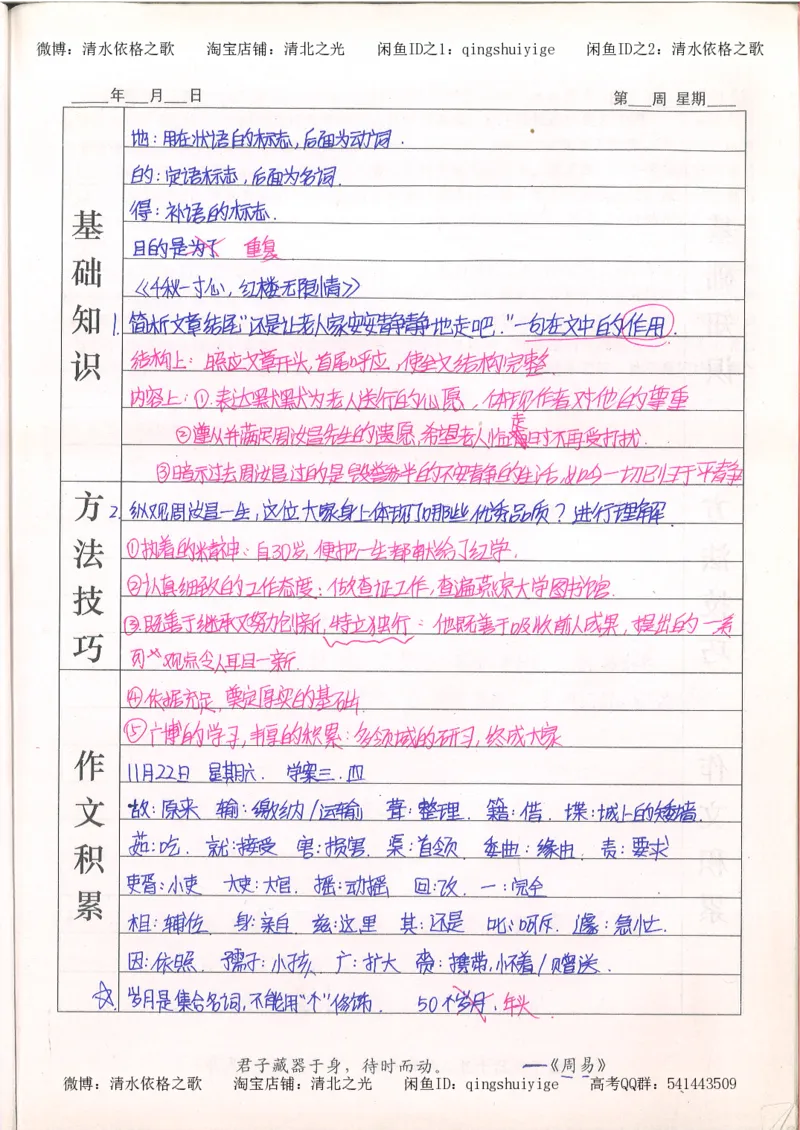 微博：清水依格之歌　淘宝店铺：清北之光　闲鱼ID之1：qingshuiyige　闲鱼ID之2：清水依格之歌
____年___月___日　第___周 星期____
基础知识
地：用在状语的标志，后面为动词．
的：定语标志，后面为名词．
得：补语的标志．
目的是为了　重复
《千秋一寸心，红楼无限情》
1. 简析文章结尾“还是让老人家安安静静地走吧．”一句在文中的作用．
结构上：照应文章开头，首尾呼应，使全文结构完整．
内容上：①．表达默默为老人送行的心愿，体现作者对他的尊重
②遵从并满足周汝昌先生的遗愿，希望老人临走时不再受打扰．
③暗示过去周汝昌过的是毁誉参半的不安静的生活，如今一切已归于平静
方法技巧
2. 纵观周汝昌一生，这位大家身上体现了哪些优秀品质？进行理解
①执着的精神：自30岁，便把一生都献给了红学．
②认真细致的工作态度：做查证工作，查遍燕京大学图书馆．
③既善于继承又努力创新，特立独行：他既善于吸收前人成果，提出的一系
列**观点令人耳目一新．
作文积累
④依据充足，奠定厚实的基础．
⑤广博的学习，丰厚的积累：多领域的研习，终成大家
11月22日　星期六．　学案三．四
故：原来　输：缴纳/运输　葺：整理．　籍：借．　堞：城上的矮墙．
茹：吃．　就：接受　害：损害．　渠：首领．　委曲：缘由．　责：要求
吏胥：小吏　大吏：大官．　摇：动摇　回：改．　一：完全
相：辅佐．　身：亲自．　兹：这里　其：还是　叱：呵斥．　遽：急忙．
因：依照．　孺子：小孩．　广：扩大　赍：携带，怀着/赠送．
☆．岁月是集合名词，不能用“个”修饰．　50个岁月．年头
君子藏器于身，待时而动。　——《周易》
微博：清水依格之歌　淘宝店铺：清北之光　闲鱼ID：qingshuiyige　高考QQ群：541443509